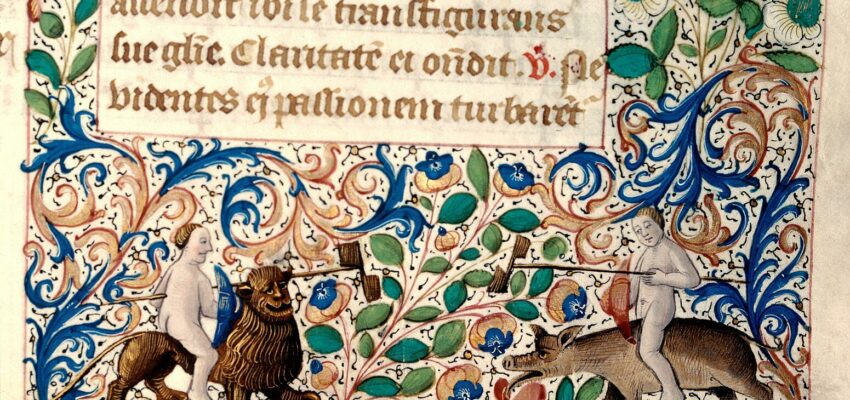 ascendit ibi se transfigurans
sue gl̄ie. Claritatē ei oñdit. V. Ne
videntes eiꝰ passionem turbarēt